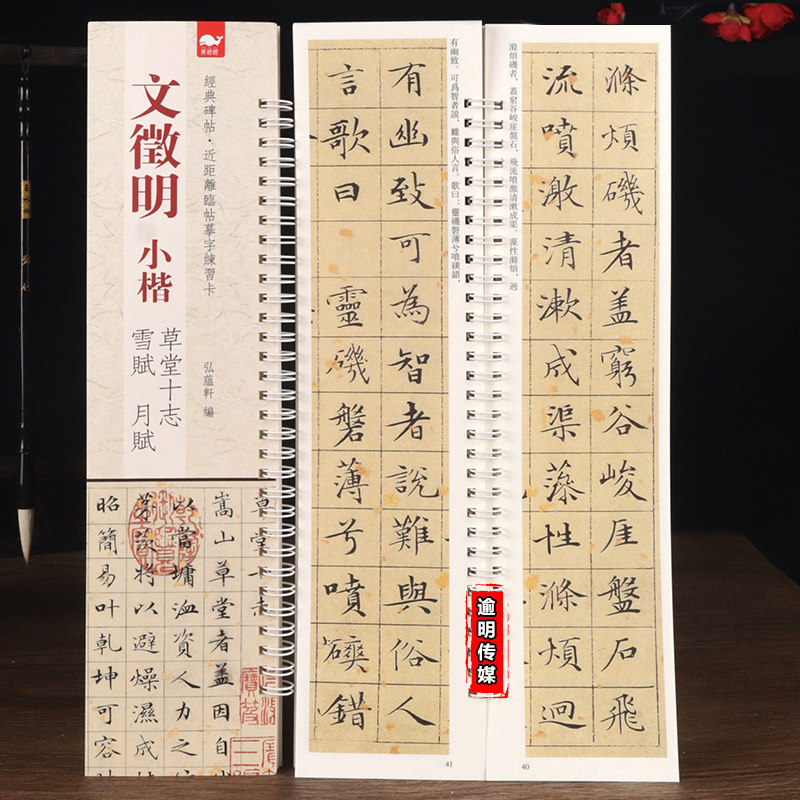 文徵明 小楷
經典碑帖·近距離臨帖摹字練習卡
草堂十志
雪賦 月賦
弘蘊軒 編
草堂十志
嵩山草堂者盖因自
以當墉洫資人力之
茅茨將以避燥濕成
昭簡易叶乾坤可容
滌煩磯者，蓋窮谷峻崖盤石，飛流噴激清漱成渠。藻性滌煩，迥
滌煩磯者盖窮谷峻厓盤石飛
流噴激清漱成渠藻性滌煩迥
40
有幽致。可爲智者説，難與俗人言。歌曰：靈磯磐薄兮噴磢錯，
有幽致可為智者說難與俗人
言歌曰靈磯磐薄兮噴磢錯
41
逾明传媒